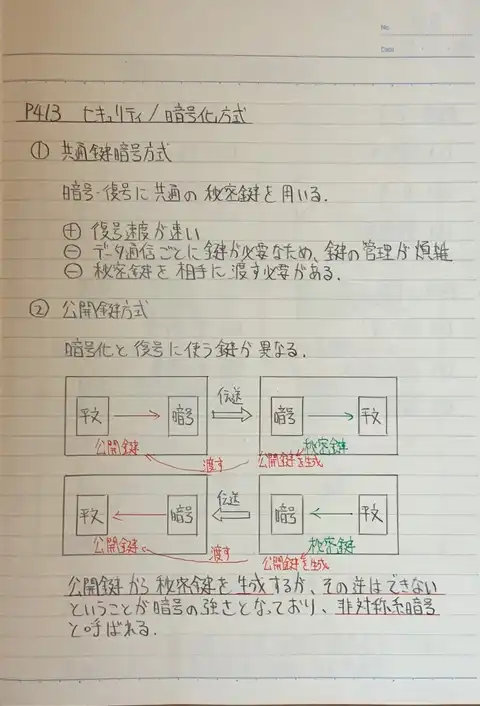 No.
Date
P413 セキュリティ/暗号化方式
① 共通鍵暗号方式
暗号・復号に共通の秘密鍵を用いる.
⊕ 復号速度が速い
⊖ データ通信ごとに鍵が必要なため、鍵の管理が煩雑
⊖ 秘密鍵を相手に渡す必要がある.
② 公開鍵方式
暗号化と復号に使う鍵が異なる.
平文 暗号 伝送 暗号 平文
公開鍵 秘密鍵
渡す 公開鍵を生成
平文 暗号 伝送 暗号 平文
公開鍵 秘密鍵
渡す 公開鍵を生成
公開鍵から秘密鍵を生成するが、その逆はできない
ということが暗号の強さとなっており、非対称系暗号
と呼ばれる.